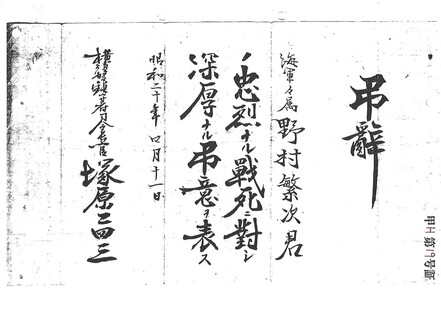 弔辭
海軍々属 野村繁次君
ノ忠烈ナル戰死ニ對シ
深厚ナル弔意ヲ表ス
昭和二十年 月十一日
横須賀鎮守府司令長官 塚原二四三
甲 第 号証